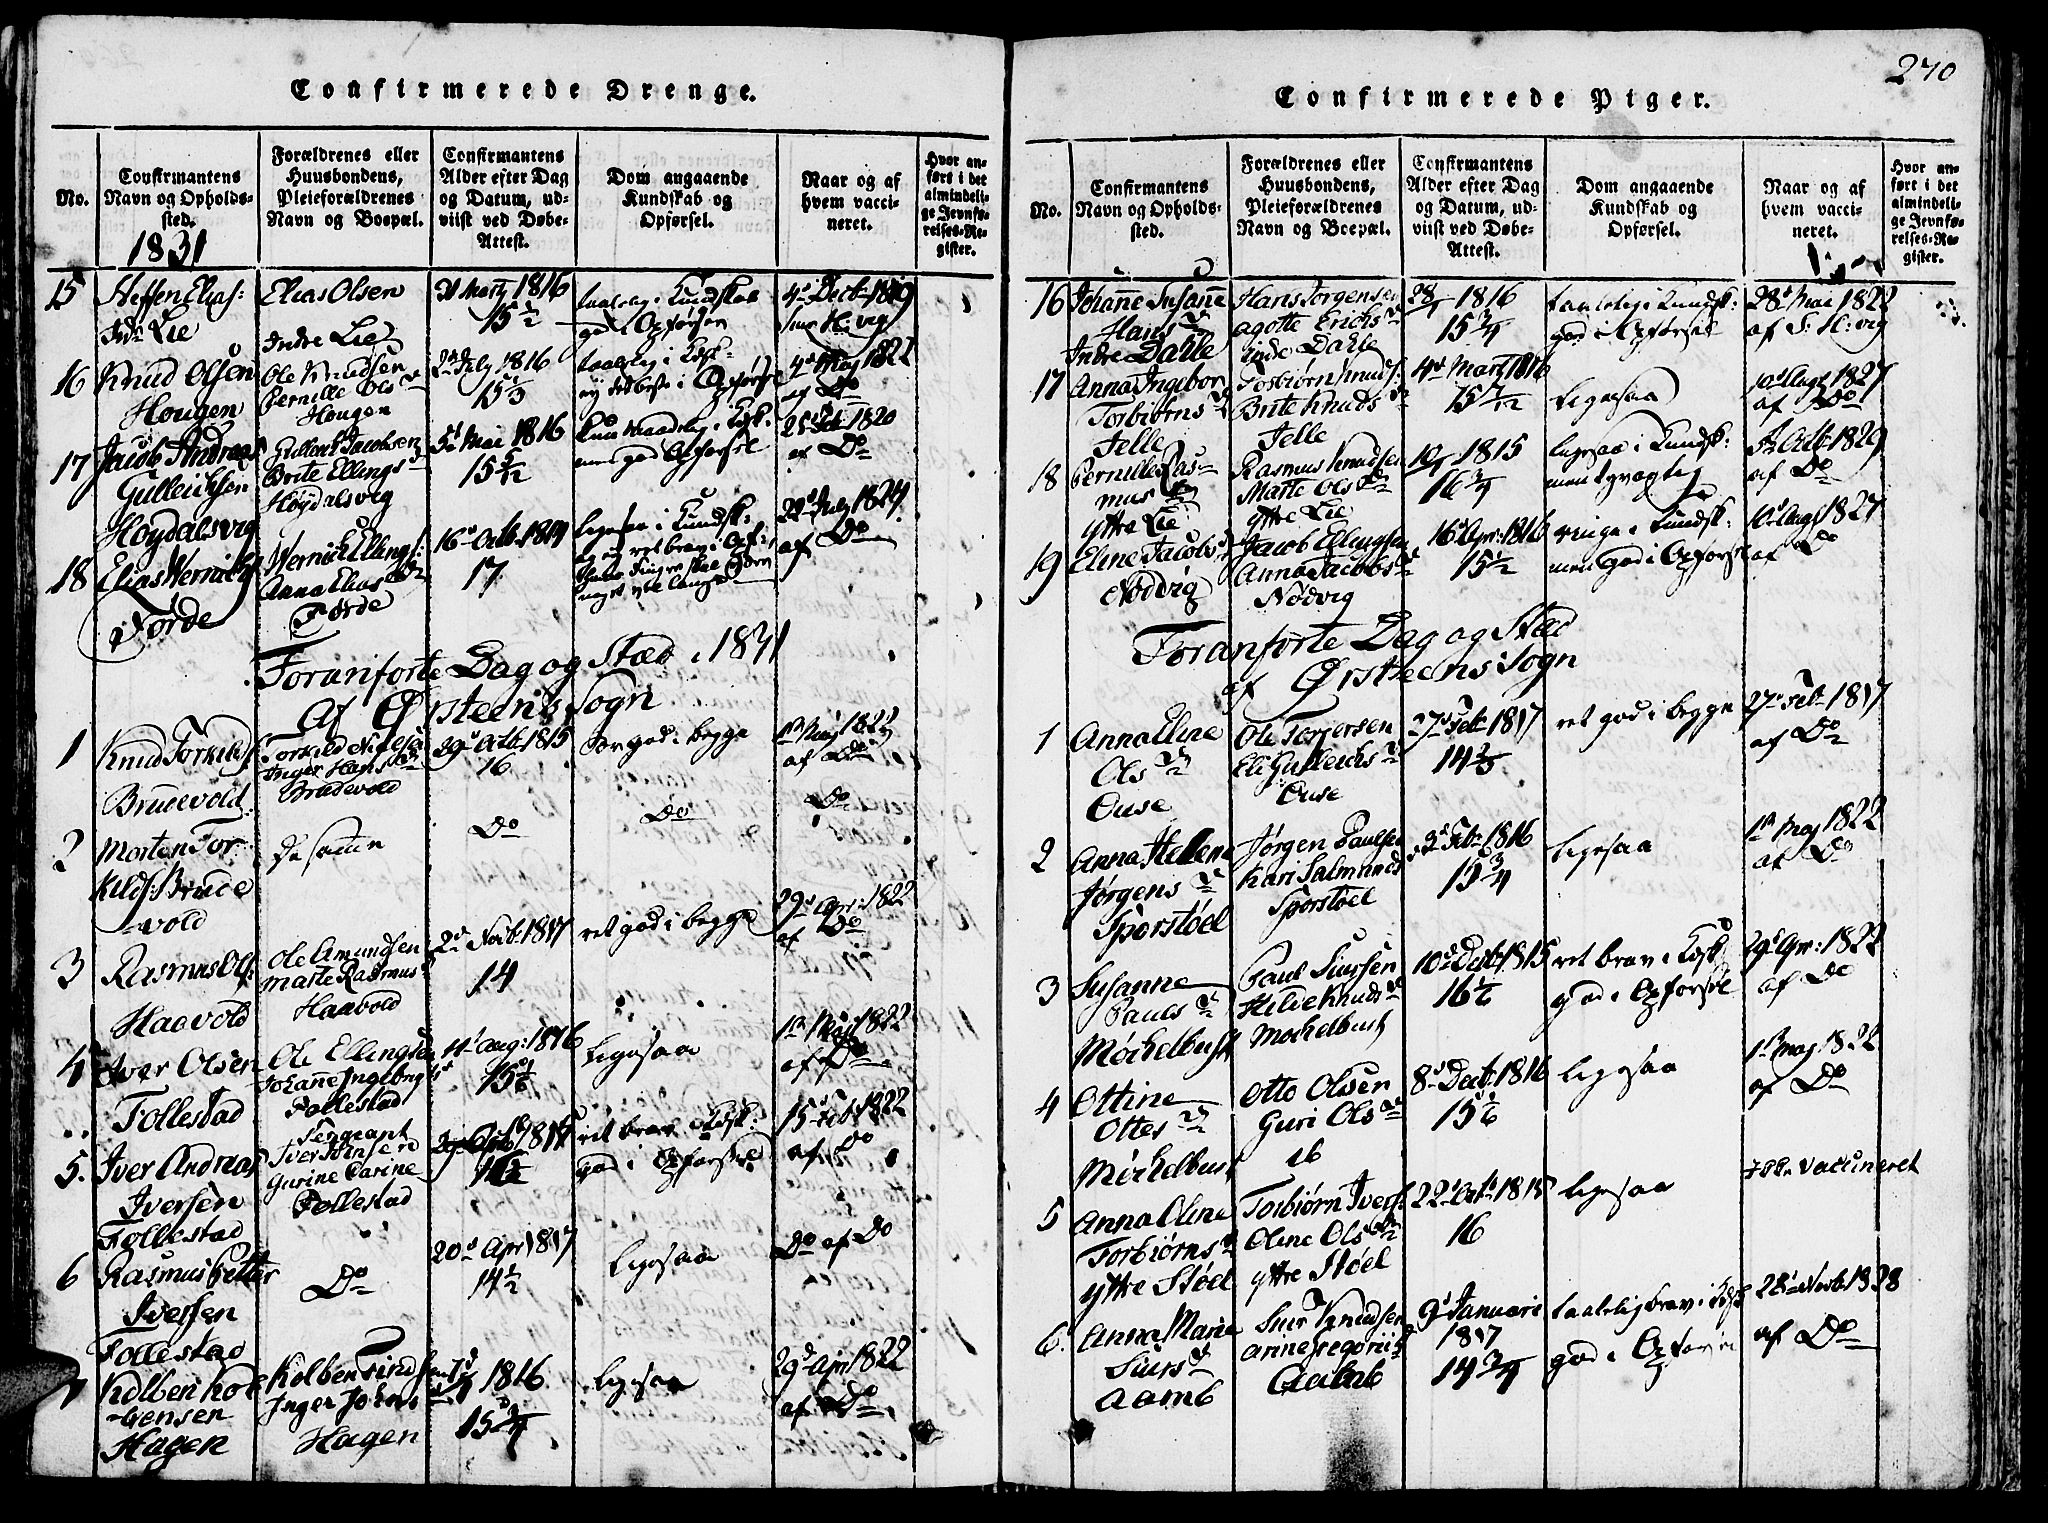 Confirmerede Drenge.
No.
Confirmantens
Navn og Opholds-
sted.
1831
Forældrenes eller
Huusbondens,
Pleieforældrenes
Navn og Boepæl.
Confirmantens
Alder efter Dag
og Datum, ud-
viist ved Døbe-
Attest.
Dom angaaende
Kundskab og
Opførsel.
Naar og af
hvem vacci-
neret.
Hvor an-
ført i det
almindeli-
ge Jevnfø-
relses-Re-
gister.
15
Steffen Elias:
Indre Lie
Elias Olsen
Indre Lie
21 Marti 1816
15 1/2
taalelig i Kundskab
god i Opførsel
4de Decbr 1819
16
Knud Olsen
Hougen
Ole Knudsen
Pernille Ols D
Hougen
July 1816
15 1/3
4de Maj 1822
af Do
17
Jacob Andreas
Gulleriksen
Høydalsvig
Gullerik Jacobsen
Brite Ellings D
Høydalsvig
5d Mai 1816
15 5/12
1820
af Do
18
Elias Wernich
Førde
Wernich Ellings:
Anna Elias D
Førde
16de Octb. 1814
17
ligesaa i Kundsk:
22d July 1824
af Do
Foranførte Dag og Stæd 1831
Af Ørsteens Sogn
1
Knud Torkilds:
Brudevold
Torkild Nielsen
Inger Hans D
Brudevold
29d Octb. 1815
16
god i begge
1ste Maj 1822
af Do
2
Morten Tor-
kilds: Brude
vold
De samme
Do
Do
Do
3
Rasmus Ols:
Haavold
Ole Amundsen
Marte Rasmus D
Haavold
2d Novb. 1817
14
ret god i begge
29d Apr: 1822
af Do
4
Iver Olsen
Follestad
Ole Ellingsen
Johanne Ingebrigts
Follestad
14d Aug: 1816
15 1/6
ligesaa
1ste Maj 1822
af Do
5.
Iver Andreas
Iversen
Follestad
Sergeant
Gurine Carine
Follestad
ret brav i Kdsk:
god i Opførsel
15d Feb. 1822
af Do
6
Rasmus Petter
Iversen
Follestad
Do
20d Apr 1817
14 1/2
ligesaa
Do af Do
7
Kolben Kol-
bensen
Hagen
Inger Johns
Hagen
1816
15 3/4
ligesaa
29d Apr 1822
af Do
270
Confirmerede Piger.
No.
Confirmantens
Navn og Opholds-
sted.
Forældrenes eller
Huusbondens,
Pleieforældrenes
Navn og Boepæl.
Confirmantens
Alder efter Dag
og Datum, ud-
viist ved Døbe-
Attest.
Dom angaaende
Kundskab og
Opførsel.
Naar og af
hvem vacci-
neret.
Hvor an-
ført i det
almindeli-
ge Jevnfø-
relses-Re-
gister.
16
Johanne Susanne
Hans D
Indre Dahle
Hans Jorgensen
agotte Erichs D
Indre Dahle
1816
15 3/4
taalelig i Kundsk:
god i Opførsel
28d Mai 1822
17
Anna Ingebor
Torbiørns D
Jelle
Torbiørn Knuds:
Brite Knuds D
Jelle
4de Marti 1816
15 7/12
ligesaa
10d Augt 1827
af Do
18
Pernille Ras-
mus D
Ytre Lie
Rasmus Knudsen
Marte Ols D
Ytre Lie
1815
16 3/4
ligesaa i Kundsk:
Octb 1829
af Do
19
Eline Jacobs D
Nødvig
Jacob Ellingsen
Anna Jacobs D
Nødvig
16d Apr: 1816
15 1/2
ringe i Kundsk:
men god i Opførsel
10d Augt 1827
af Do
Foranførte Dag og Stæd
af Ørsteens Sogn
1
Anna Eline
Ols D
Ouse
Ole Torgersen
Eli Gullerichs D
Ouse
27d Feb. 1817
14 2/3
ret god i begge
27d Feb. 1817
af Do
2
Anna Hellene
Jørgens D
Sporstøel
Jørgen Paulsen
Kari Salmunds
Sporstøel
3d Feb. 1816
15 3/4
ligesaa
1ste Maj 1822
af Do
3
Susanne
Pauls D
Møchelbust
Paul Siursen
Hilde Knuds D
Mochelbust
10d Decbr. 1815
16 1/6
ret brav i Kdsk:
god i Opførsel
29d Apr: 1822
af Do
4
Ottine
Ottes D
Møchelbust
Otto Olsen
Guri Ols D
ib
8d Decbr. 1816
15 1/6
ligesaa
1ste Maj 1822
af Do
5
Anna Oline
Torbiørns D
Ytre Støel
Torbiørn Ivers:
Oline Ols D
Ytre Støel
22d Octb. 1815
16
ligesaa
vaccineret
6.
Anna Marie
Siurs D
Aamb
Siur Knudsen
9d Januari
1817
14 3/4
taalelig brav i Kdsk
god i Opførsel
af Do